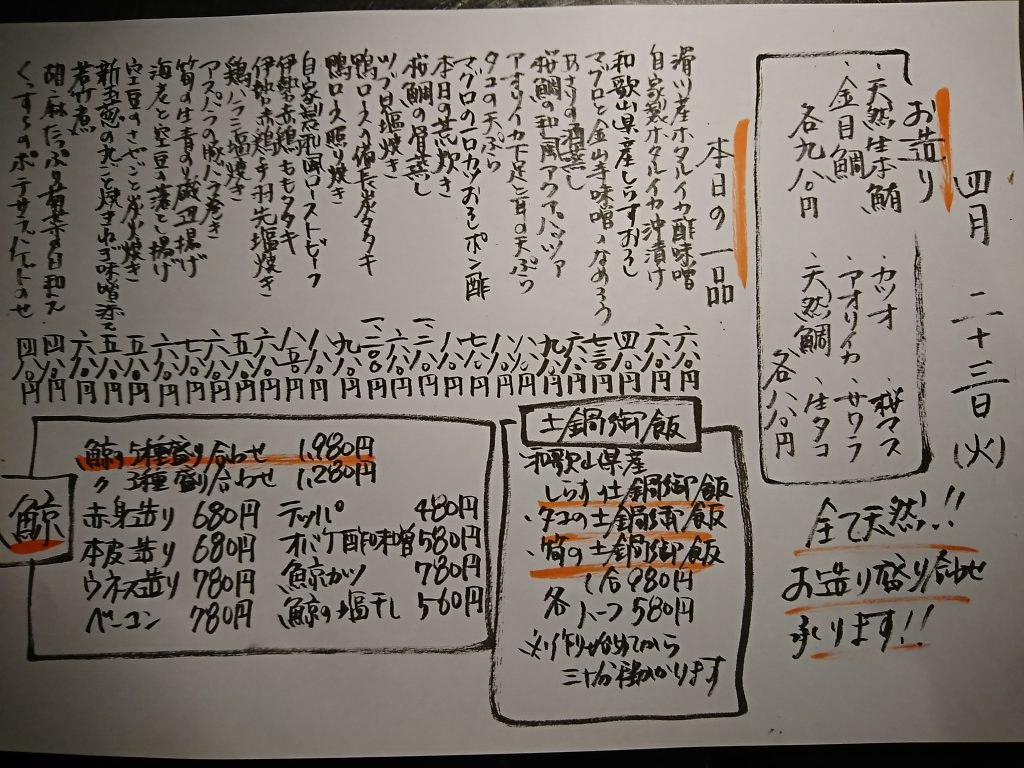 四月 二十三日(火)
お造り
・天然生本鮪
・金目鯛
各九八〇円
・カツオ ・桜マス
・アオリイカ ・サワラ
・天然鯛 ・生タコ
各八八〇円
全て天然!!
お造り盛り合わせ
承ります!!
本日の一品
滑川産ホタルイカ酢味噌 六八〇円
自家製ホタルイカ沖漬け 六八〇円
和歌山県産しらすおろし 四八〇円
マグロと金山寺味噌のなめろう 七三〇円
あさりの酒蒸し 六八〇円
桜鯛の和風アクアパッツァ 九八〇円
アオリイカ下足と耳の天ぷら 八八〇円
タコの天ぷら 八八〇円
マグロの一口カツおろしポン酢 七八〇円
本日の荒炊き 八八〇円
桜鯛の骨蒸し
ツブ貝塩焼き 六八〇円
鴨ロースの備長炭タタキ
鴨ロース照り焼き 九八〇円
自家製和風ローストビーフ
伊勢赤鶏ももタタキ 八八〇円
伊勢赤鶏手羽先塩焼き
鶏ハラミ塩焼き 五八〇円
アスパラの豚バラ巻き 六八〇円
筍の生青のり磯辺揚げ 七八〇円
海老と空豆のかき揚げ 六八〇円
空豆のさやごと炭火焼き 五八〇円
新玉葱の丸ごと焼きねぎ味噌添え 五八〇円
若竹煮 六八〇円
胡麻たっぷり
くんすらのポテサラ 四八〇円
土鍋御飯
和歌山県産
・しらす土鍋御飯
・タコの土鍋御飯
・筍の土鍋御飯
各 1合980円
ハーフ580円
三十分程かかります
鯨
鯨の5種盛り合わせ 1,980円
〃 3種盛り合わせ 1,280円
赤身造り 680円 テッパ 480円
本皮造り 680円 オバケ酢味噌 580円
ウネス造り 780円 鯨カツ 780円
ベーコン 780円 鯨の塩干し 560円